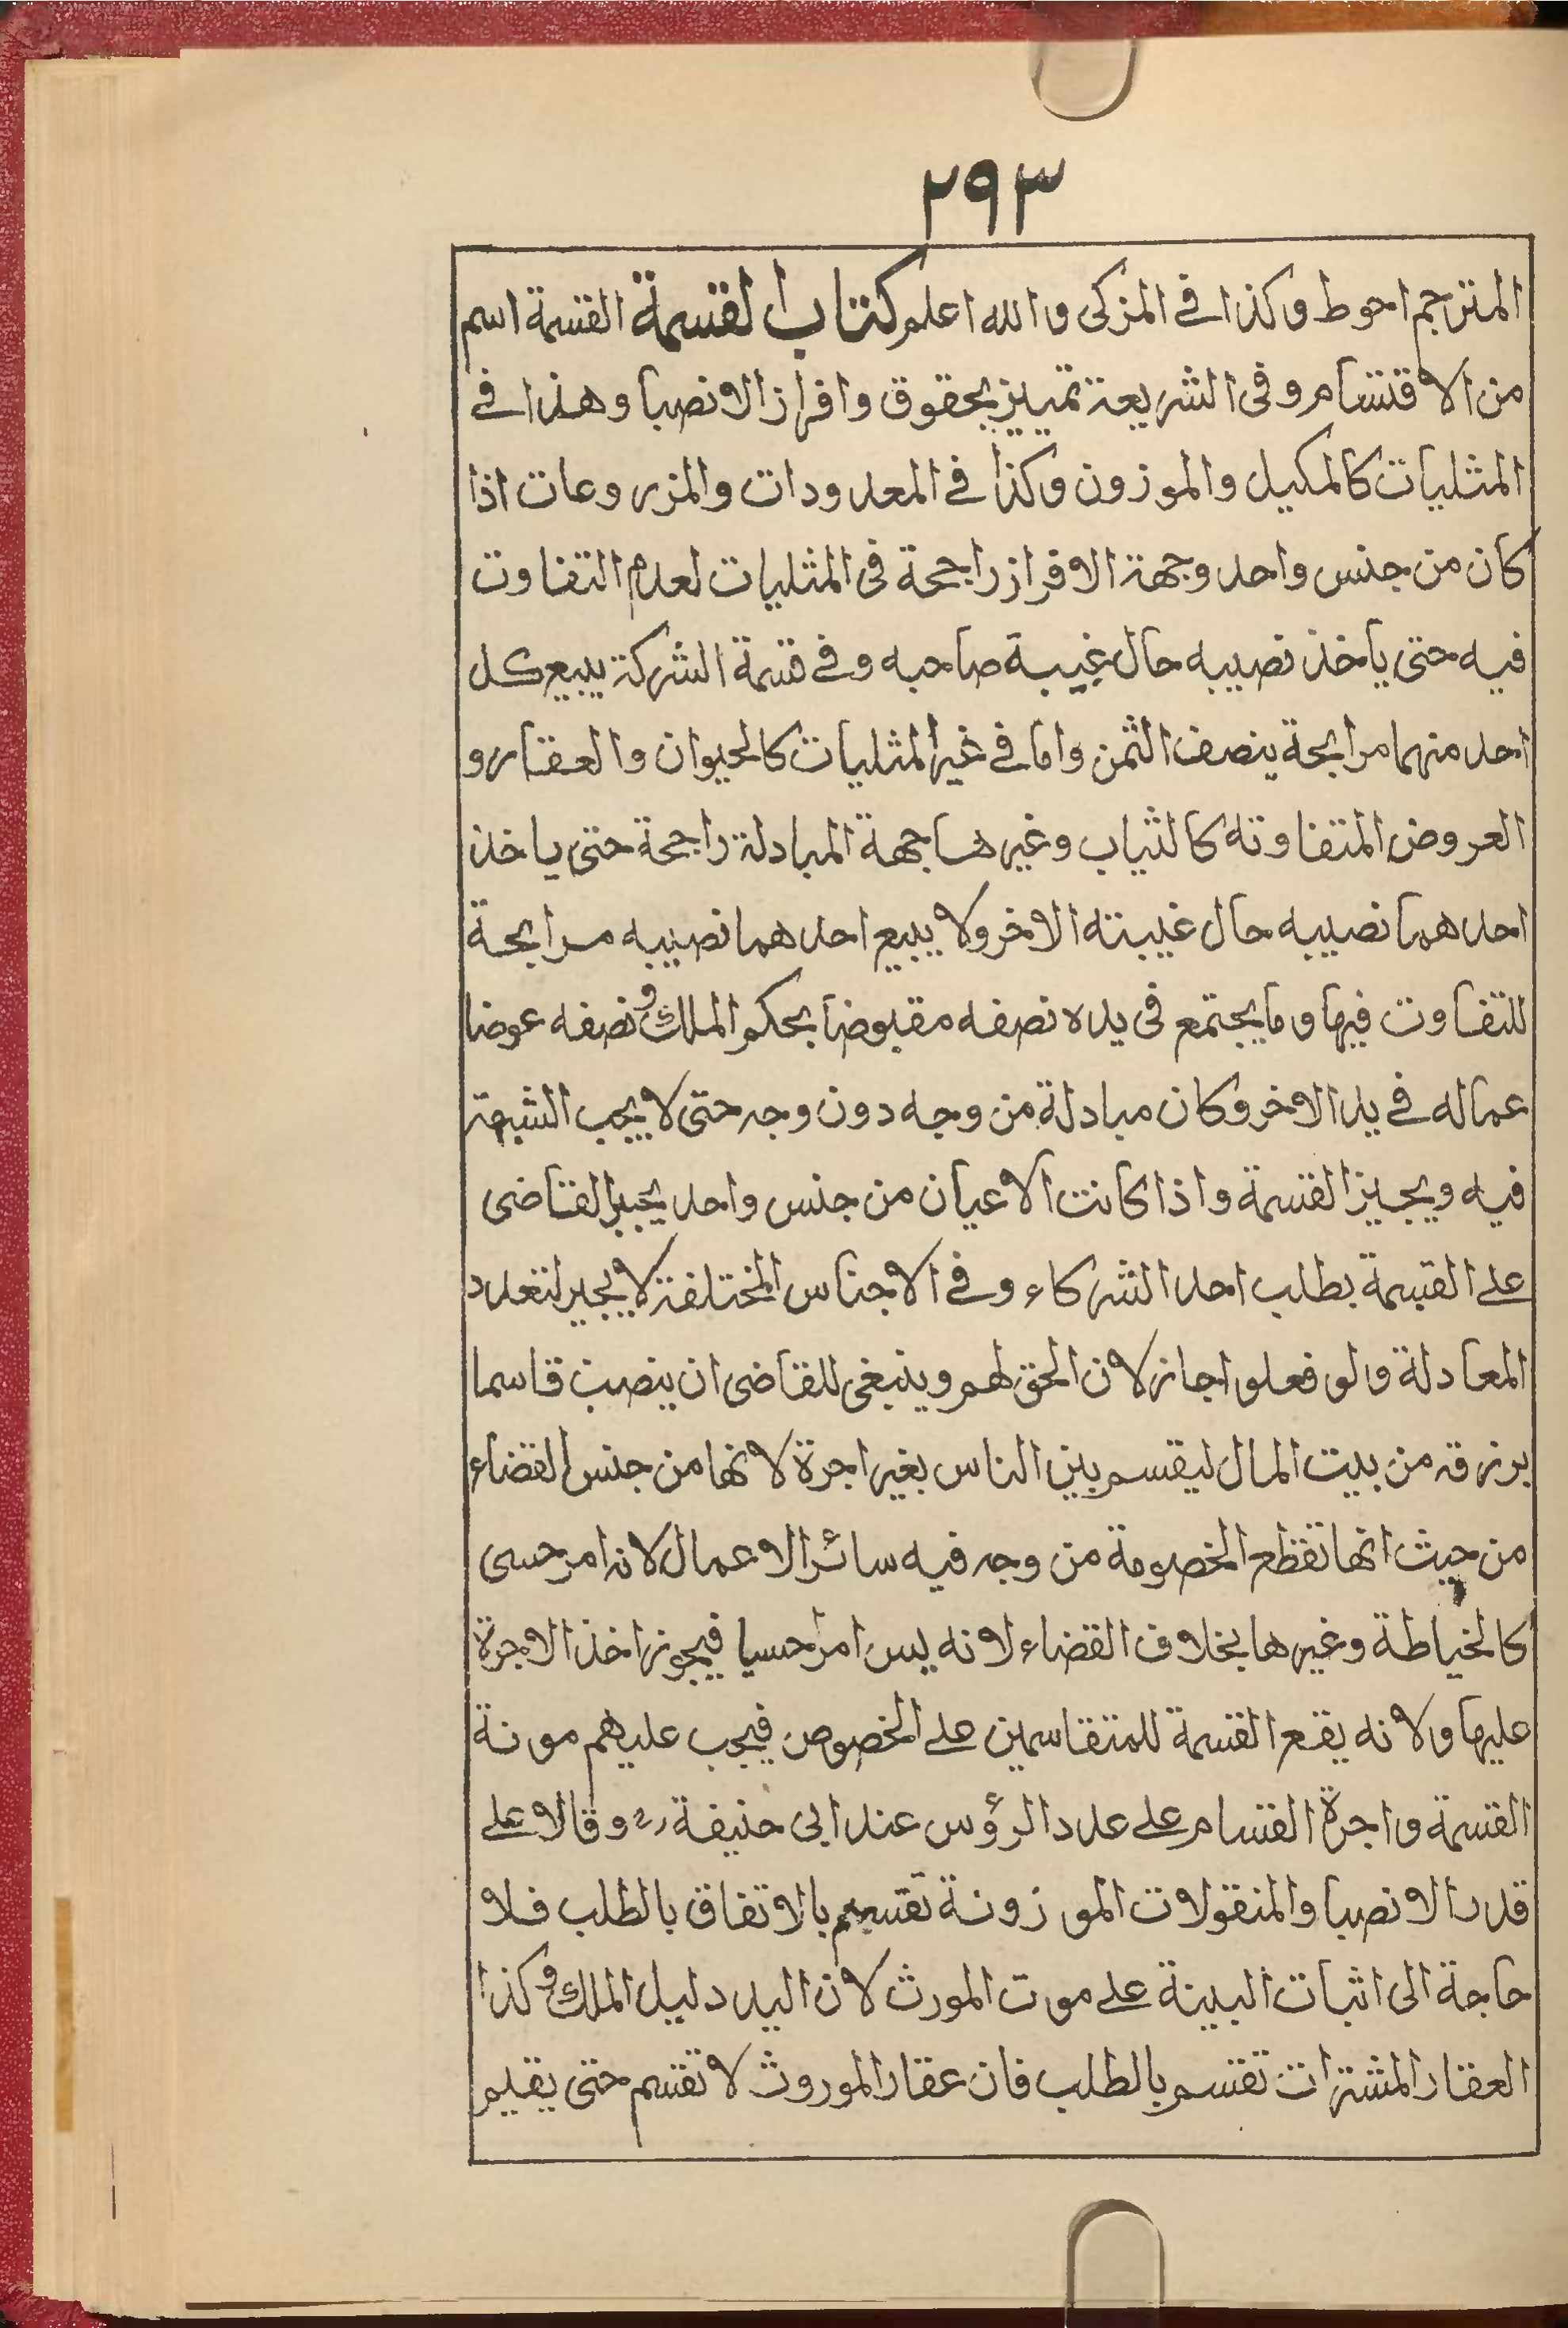 ٢٩٣
المترجم احوط وكذا في المزكى والله اعلم كتاب القسمة القسمة اسم
من الاقتسام وفى الشريعة تمييز بحقوق وافراز الانصبا وهذا في
المثليات كالمكيل والموزون وكذا في المعدودات والمزروعات اذا
كان من جنس واحد وجهة الافراز راجحة فى المثليات لعدم التفاوت
فيه حتى ياخذ نصيبه حال غيبة صاحبه وفي قسمة الشركة يبيع كل
احد منهما مرابحة ينصف الثمن واما في غير المثليات كالحيوان والعقار و
العروض المتفاوته كالثياب وغيرها جهة المبادلة راجحة حتى ياخذ
احدهما نصيبه حال غيبته الاخر ولا يبيع احدهما نصيبه مرابحة
للتفاوت فيها وما يجتمع فى يده نصفه مقبوضا بحكم الملك ونصفه عوضا
عماله في يد الاخر وكان مبادلة من وجه دون وجه حتى لا يجب الشبهة
فيه ويجيز القسمة واذا كانت الاعيان من جنس واحد يجبر القاضى
على القسمة بطلب احد الشركاء وفي الاجناس المختلفة لا يجبر لتعدد
المعادلة ولو فعلوا جاز لان الحق لهم وينبغى للقاضى ان ينصب قاسما
برزقه من بيت المال ليقسم بين الناس بغير اجرة لانها من جنس القضاء
من حيث انها تقطع الخصومة من وجه فيه سائر الاعمال لانه امر حسى
كالخياطة وغيرها بخلاف القضاء لانه يس امرا حسيا فيجوز اخذ الاجرة
عليها ولانه يقع القسمة للمتقاسمين على الخصوص فيجب عليهم مونة
القسمة واجرة القسام على عدد الرؤس عند ابى حنيفة رح وقالا على
قدر الانصبا والمنقولات الموزونة تقسم بالاتفاق بالطلب فلا
حاجة الى اثبات البينة على موت المورث لان اليد دليل الملك وكذا
العقار المشترات تقسم بالطلب فان عقار الموروث لا تقسم حتى يقيم